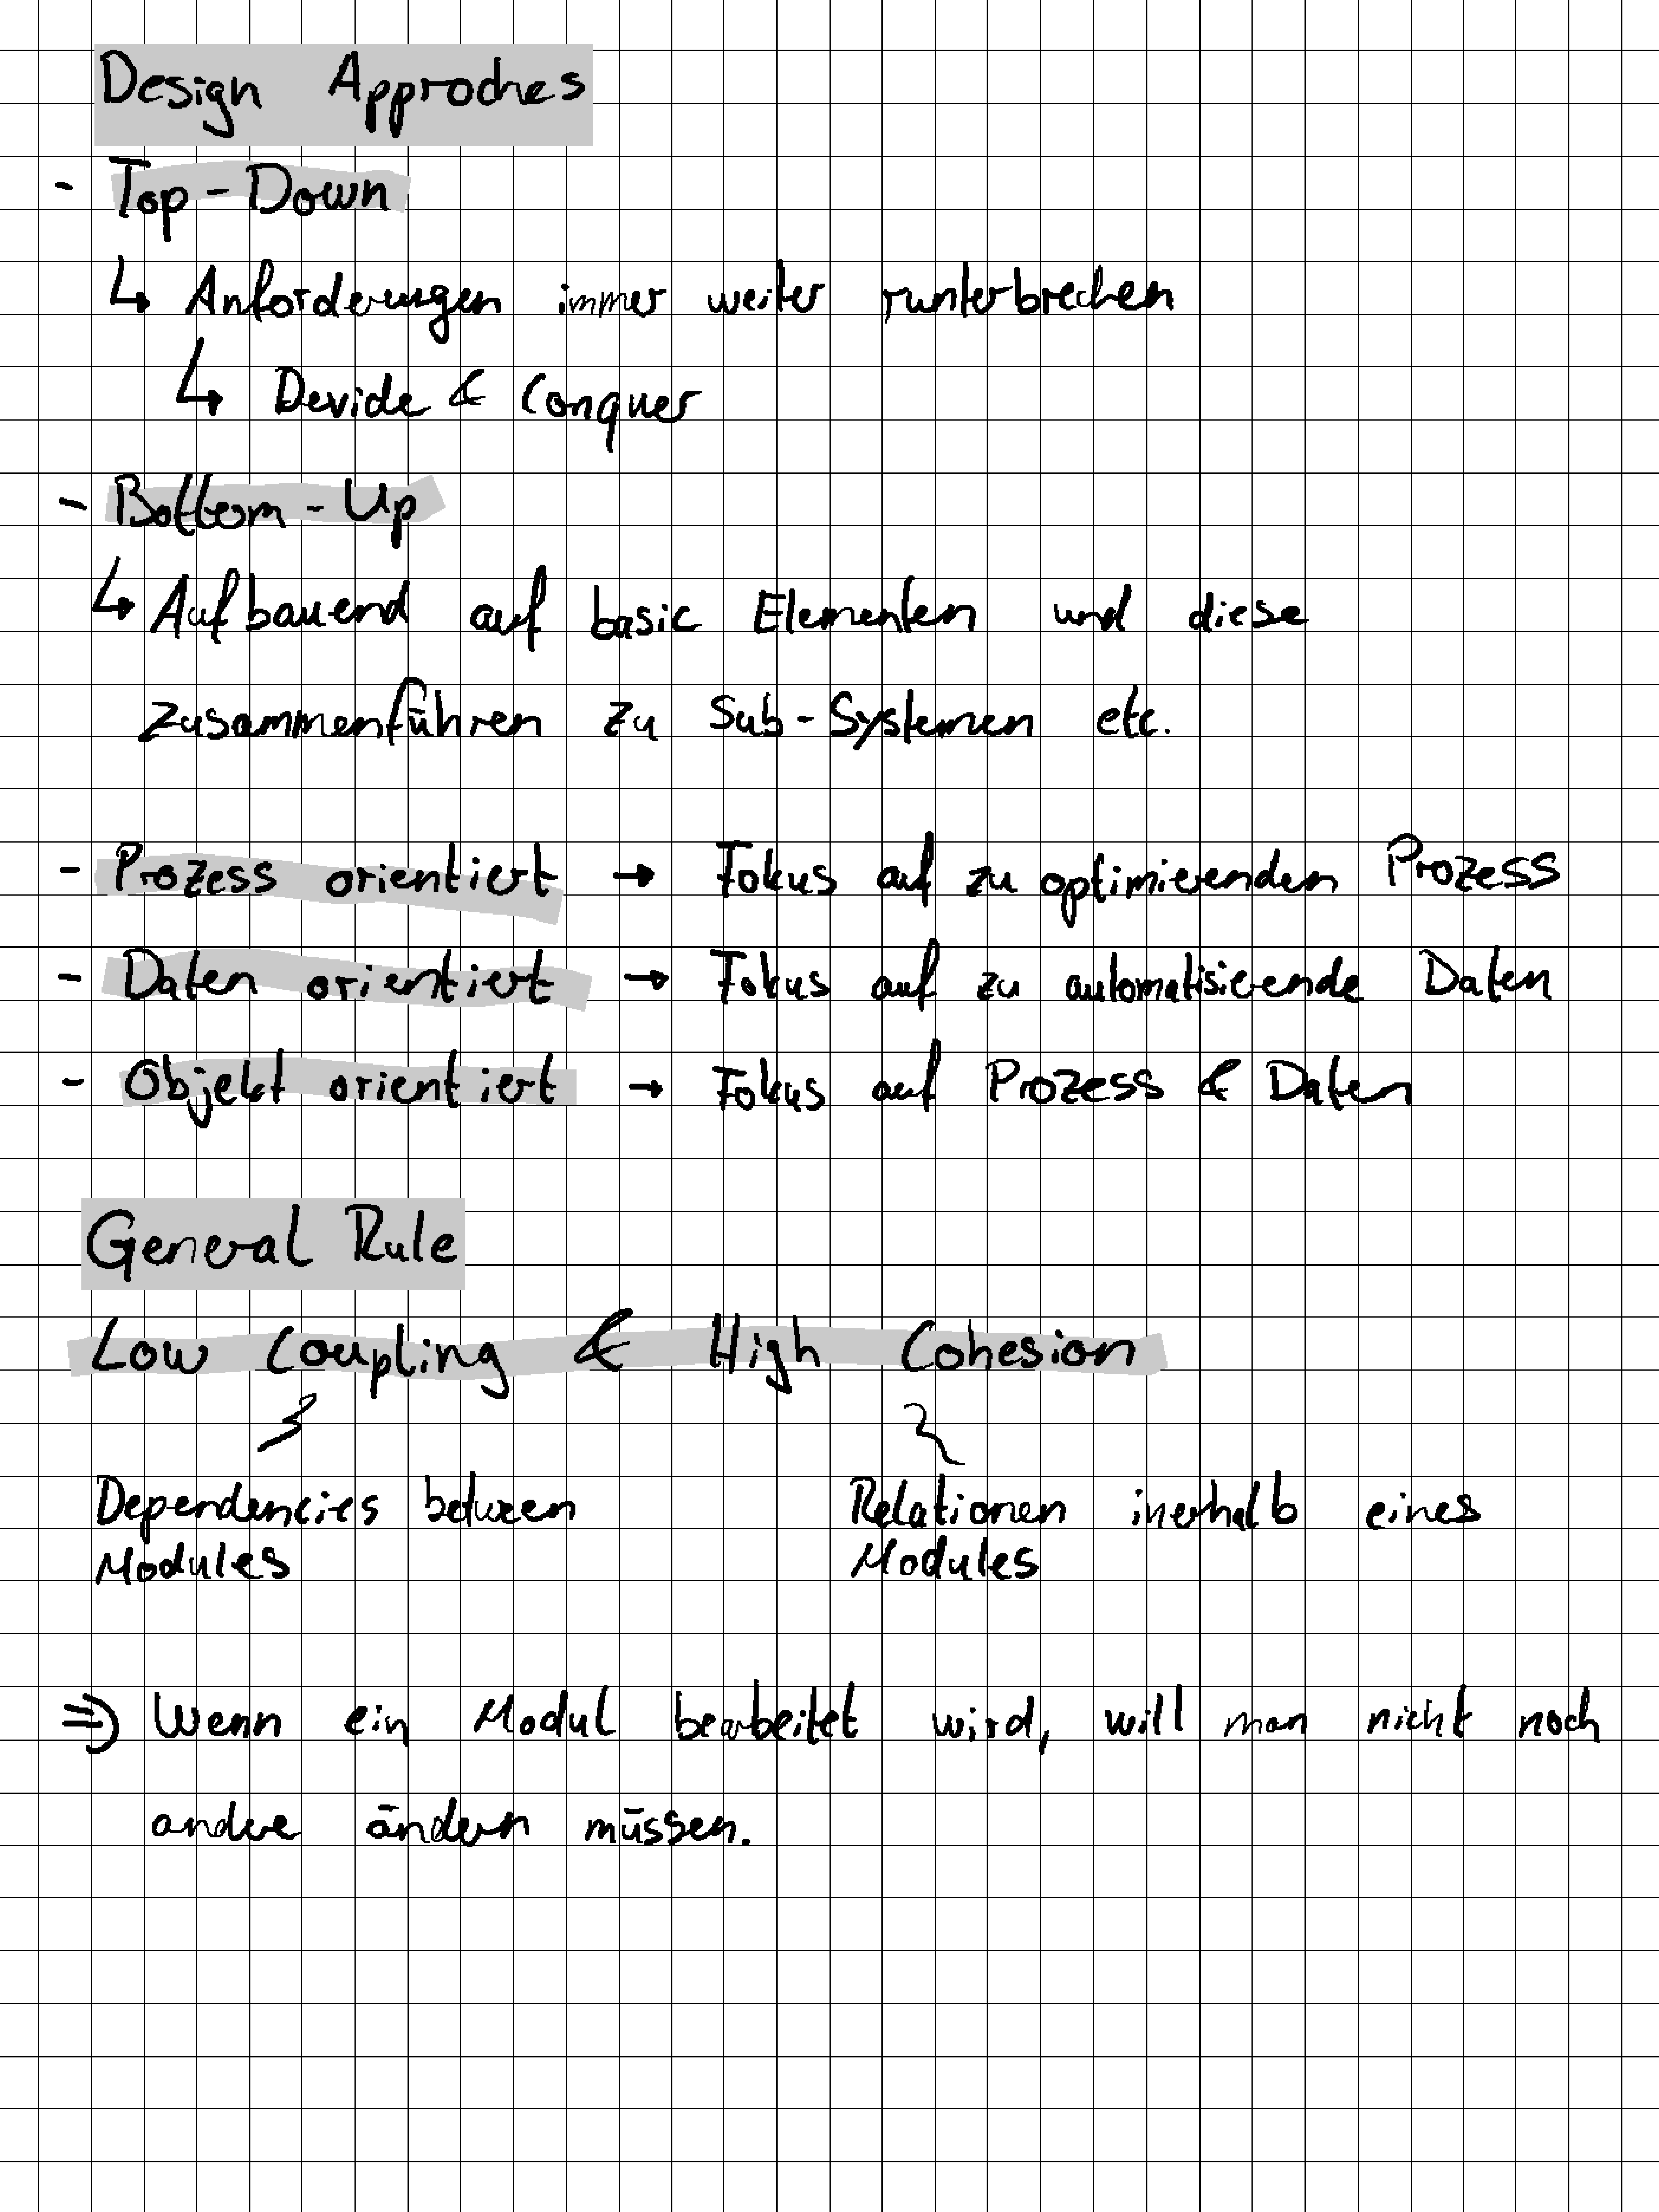 Design Approches
- Top-Down
↳ Anforderungen immer weiter runterbrechen
↳ Devide & Conquer
- Bottom-Up
↳ Aufbauend auf basic Elementen und diese
zusammenführen zu Sub-Systemen etc.
- Prozess orientiert → Fokus auf zu optimierenden Prozess
- Daten orientiert → Fokus auf zu automatisierende Daten
- Objekt orientiert → Fokus auf Prozess & Daten
General Rule
Low Coupling & High Cohesion
Dependencies between Relationen inerhalb eines
Modules Modules
⇒ Wenn ein Modul bearbeitet wird, will man nicht noch
andere ändern müssen.